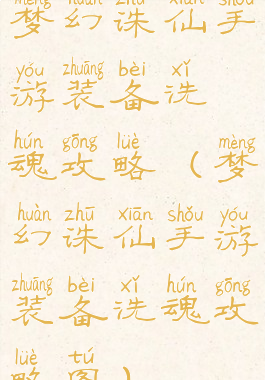 mèng huàn zhū xiān shǒu
梦幻诛仙手
yóu zhuāng bèi xǐ
游装备洗
hún gōng lüè mèng
魂攻略（梦
huàn zhū xiān shǒu yóu
幻诛仙手游
zhuāng bèi xǐ hún gōng
装备洗魂攻
lüè tú
略图）